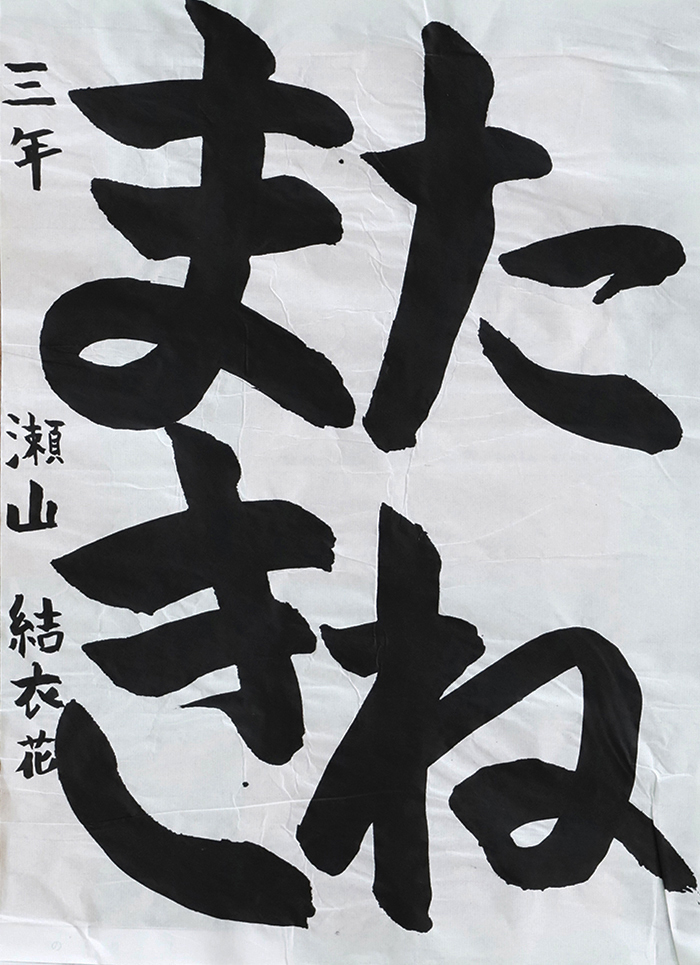 たね
まき
三年 瀬山 結衣花